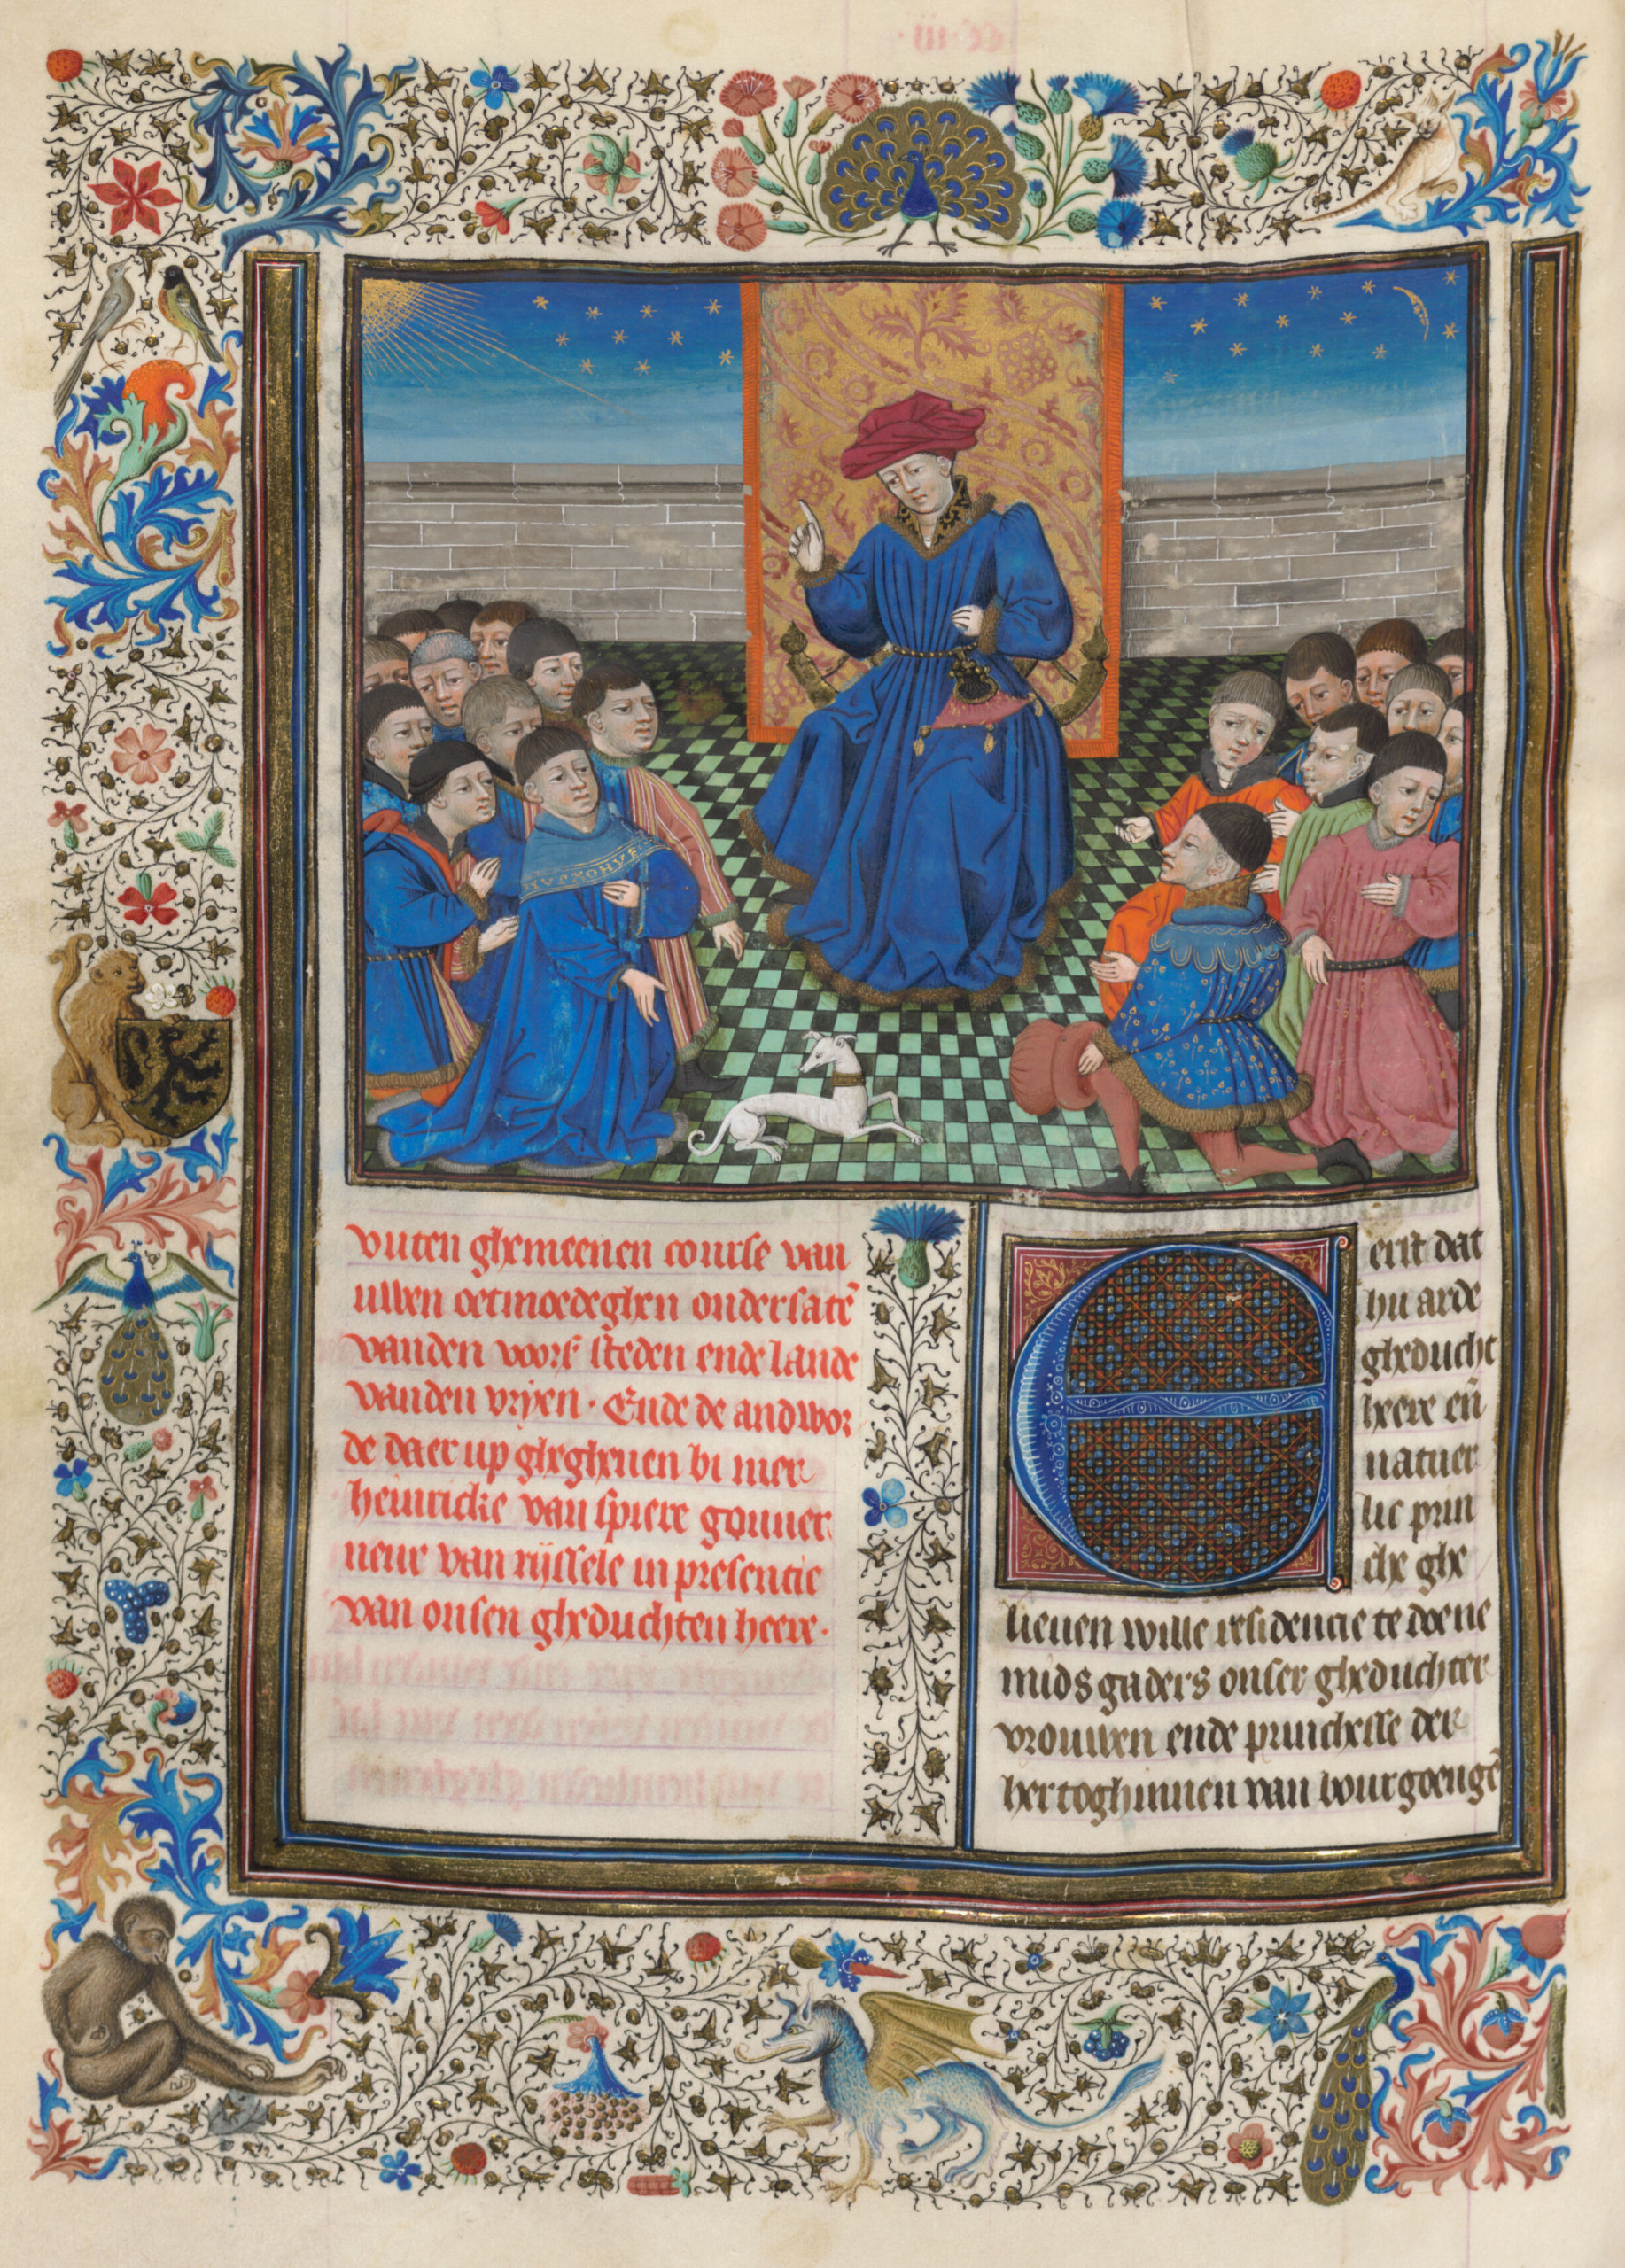 vuten ghemeenen course van
uwen oetmoedeghen ondersatē
vanden voors steden ende lande
vanden vryen · Ende de andwor
de daer up ghegheuen bi mer
heinricke van spiere gouuer
neur van ryssele in presentie
van onsen gheduchten heere ·
Eerst dat
hu arde
gheducht
heere eñ
natuer
lic prin
che ghe
lieuen wille residencie te doene
midsgaders onser gheduchter
vrouwen ende princhesse der
hertoghinnen van bourgoengē